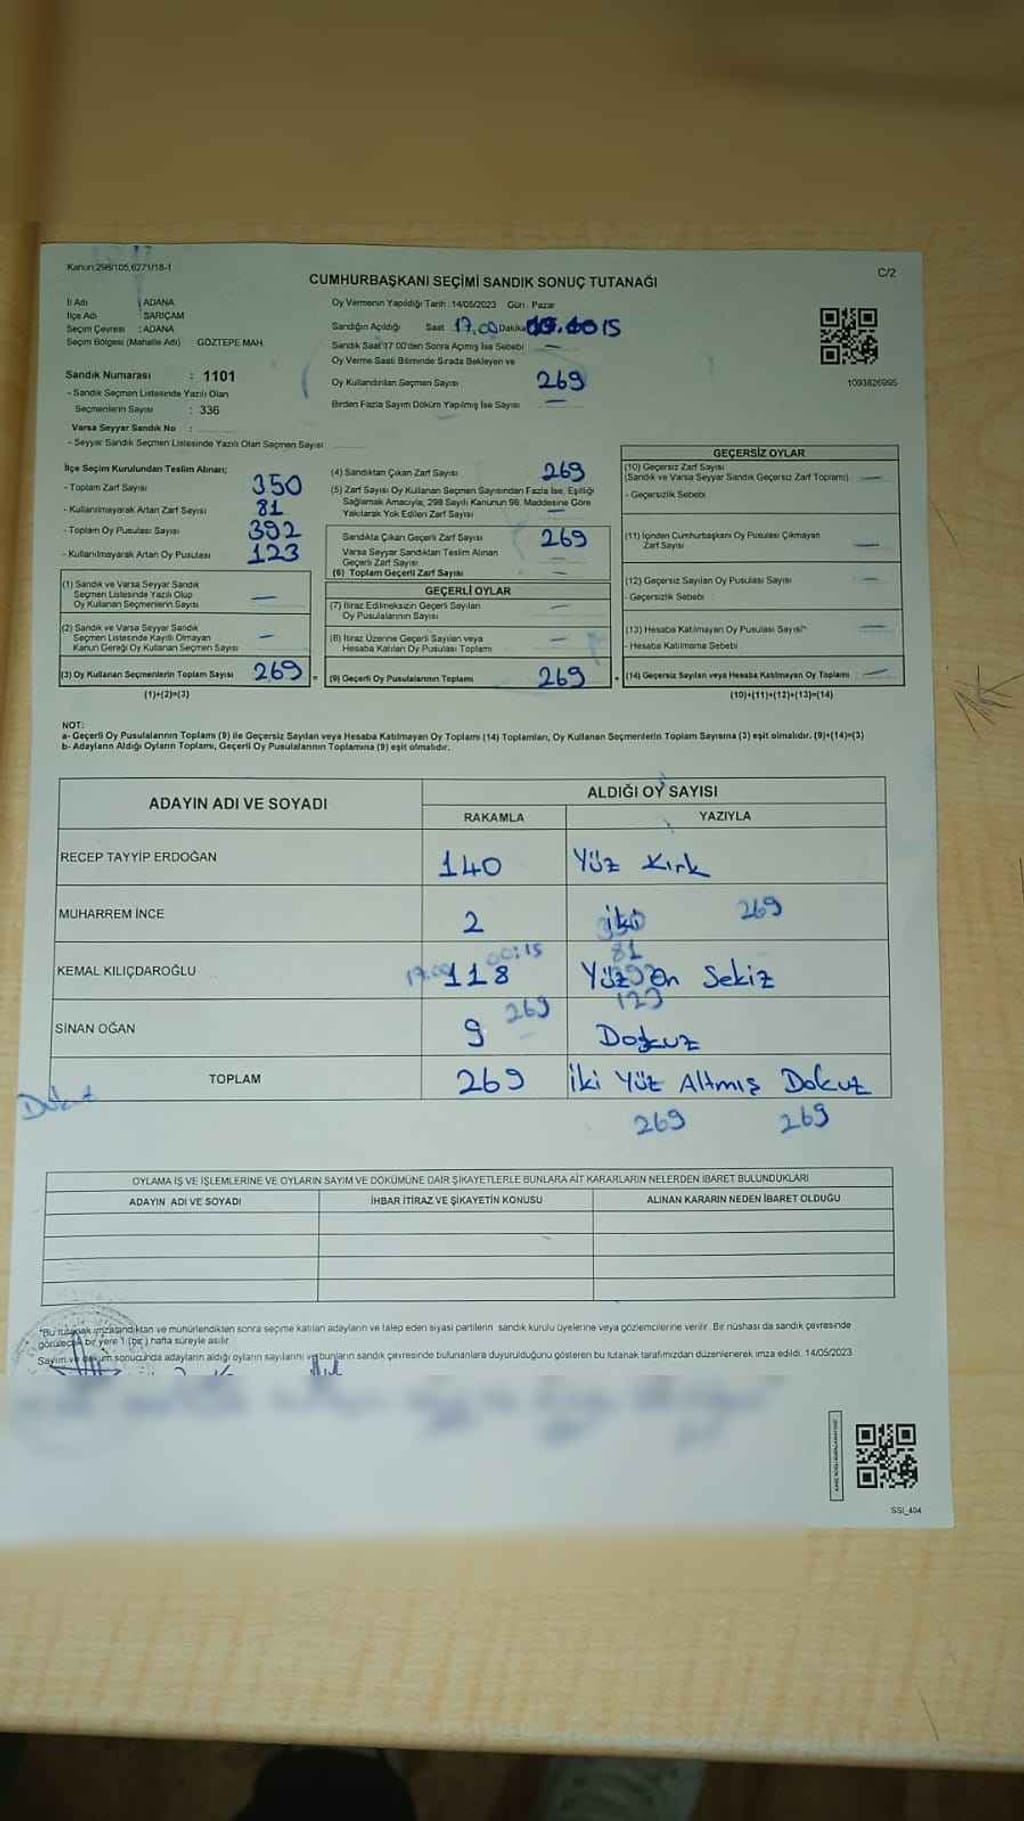 Kanun:298/105,6271/18-1
C/2
CUMHURBAŞKANI SEÇİMİ SANDIK SONUÇ TUTANAĞI
İl Adı : ADANA
İlçe Adı : SARIÇAM
Seçim Çevresi : ADANA
Seçim Bölgesi (Mahalle Adı) GÖZTEPE MAH.
Oy Vermenin Yapıldığı Tarih : 14/05/2023 Gün : Pazar
Sandığın Açıldığı Saat 17.00 Dakika 15
Sandık Saat 17.00'den Sonra Açmış İse Sebebi —
Oy Verme Saati Bitiminde Sırada Bekleyen ve
Oy Kullandırılan Seçmen Sayısı 269
Birden Fazla Sayım Döküm Yapılmış İse Sayısı —
1093826995
Sandık Numarası : 1101
- Sandık Seçmen Listesinde Yazılı Olan
Seçmenlerin Sayısı : 336
Varsa Seyyar Sandık No :
- Seyyar Sandık Seçmen Listesinde Yazılı Olan Seçmen Sayısı
İlçe Seçim Kurulundan Teslim Alınan;
- Toplam Zarf Sayısı 350
- Kullanılmayarak Artan Zarf Sayısı 81
- Toplam Oy Pusulası Sayısı 392
- Kullanılmayarak Artan Oy Pusulası 123
(1) Sandık ve Varsa Seyyar Sandık
Seçmen Listesinde Yazılı Olup
Oy Kullanan Seçmenlerin Sayısı —
(2) Sandık ve Varsa Seyyar Sandık
Seçmen Listesinde Kayıtlı Olmayan
Kanun Gereği Oy Kullanan Seçmen Sayısı —
(3) Oy Kullanan Seçmenlerin Toplam Sayısı 269 =
(1)+(2)=(3)
(4) Sandıktan Çıkan Zarf Sayısı 269
(5) Zarf Sayısı Oy Kullanan Seçmen Sayısından Fazla İse, Eşitliği
Sağlamak Amacıyla, 298 Sayılı Kanunun 98. Maddesine Göre
Yakılarak Yok Edilen Zarf Sayısı —
Sandıkta Çıkan Geçerli Zarf Sayısı 269
Varsa Seyyar Sandıktan Teslim Alınan
Geçerli Zarf Sayısı —
(6) Toplam Geçerli Zarf Sayısı —
GEÇERLİ OYLAR
(7) İtiraz Edilmeksizin Geçerli Sayılan
Oy Pusulalarının Sayısı —
(8) İtiraz Üzerine Geçerli Sayılan veya
Hesaba Katılan Oy Pusulası Toplamı —
(9) Geçerli Oy Pusulalarının Toplamı 269 +
GEÇERSİZ OYLAR
(10) Geçersiz Zarf Sayısı
(Sandık ve Varsa Seyyar Sandık Geçersiz Zarf Toplamı) —
- Geçersizlik Sebebi
(11) İçinden Cumhurbaşkanı Oy Pusulası Çıkmayan
Zarf Sayısı —
(12) Geçersiz Sayılan Oy Pusulası Sayısı —
- Geçersizlik Sebebi :
(13) Hesaba Katılmayan Oy Pusulası Sayısı* —
- Hesaba Katılmama Sebebi
(14) Geçersiz Sayılan veya Hesaba Katılmayan Oy Toplamı —
(10)+(11)+(12)+(13)=(14)
NOT:
a- Geçerli Oy Pusulalarının Toplamı (9) ile Geçersiz Sayılan veya Hesaba Katılmayan Oy Toplamı (14) Toplamları, Oy Kullanan Seçmenlerin Toplam Sayısına (3) eşit olmalıdır. (9)+(14)=(3)
b- Adayların Aldığı Oyların Toplamı, Geçerli Oy Pusulalarının Toplamına (9) eşit olmalıdır.
ADAYIN ADI VE SOYADI ALDIĞI OY SAYISI
RAKAMLA YAZIYLA
RECEP TAYYİP ERDOĞAN 140 Yüz Kırk
MUHARREM İNCE 2 iki 269
17.00 00:15 81
KEMAL KILIÇDAROĞLU 118 Yüz On Sekiz
269 123
SİNAN OĞAN 9 Dokuz
TOPLAM 269 iki Yüz Altmış Dokuz
269 269
OYLAMA İŞ VE İŞLEMLERİNE VE OYLARIN SAYIM VE DÖKÜMÜNE DAİR ŞİKAYETLERLE BUNLARA AİT KARARLARIN NELERDEN İBARET BULUNDUKLARI
ADAYIN ADI VE SOYADI İHBAR İTİRAZ VE ŞİKAYETİN KONUSU ALINAN KARARIN NEDEN İBARET OLDUĞU
*Bu tutanak imzalandıktan ve mühürlendikten sonra seçime katılan adayların ve talep eden siyasi partilerin sandık kurulu üyelerine veya gözlemcilerine verilir. Bir nüshası da sandık çevresinde
görülecek bir yere 1 (bir) hafta süreyle asılır.
Sayım ve döküm sonucunda adayların aldığı oyların sayılarını ve bunların sandık çevresinde bulunanlara duyurulduğunu gösteren bu tutanak tarafımızdan düzenlenerek imza edildi. 14/05/2023
SSI_404